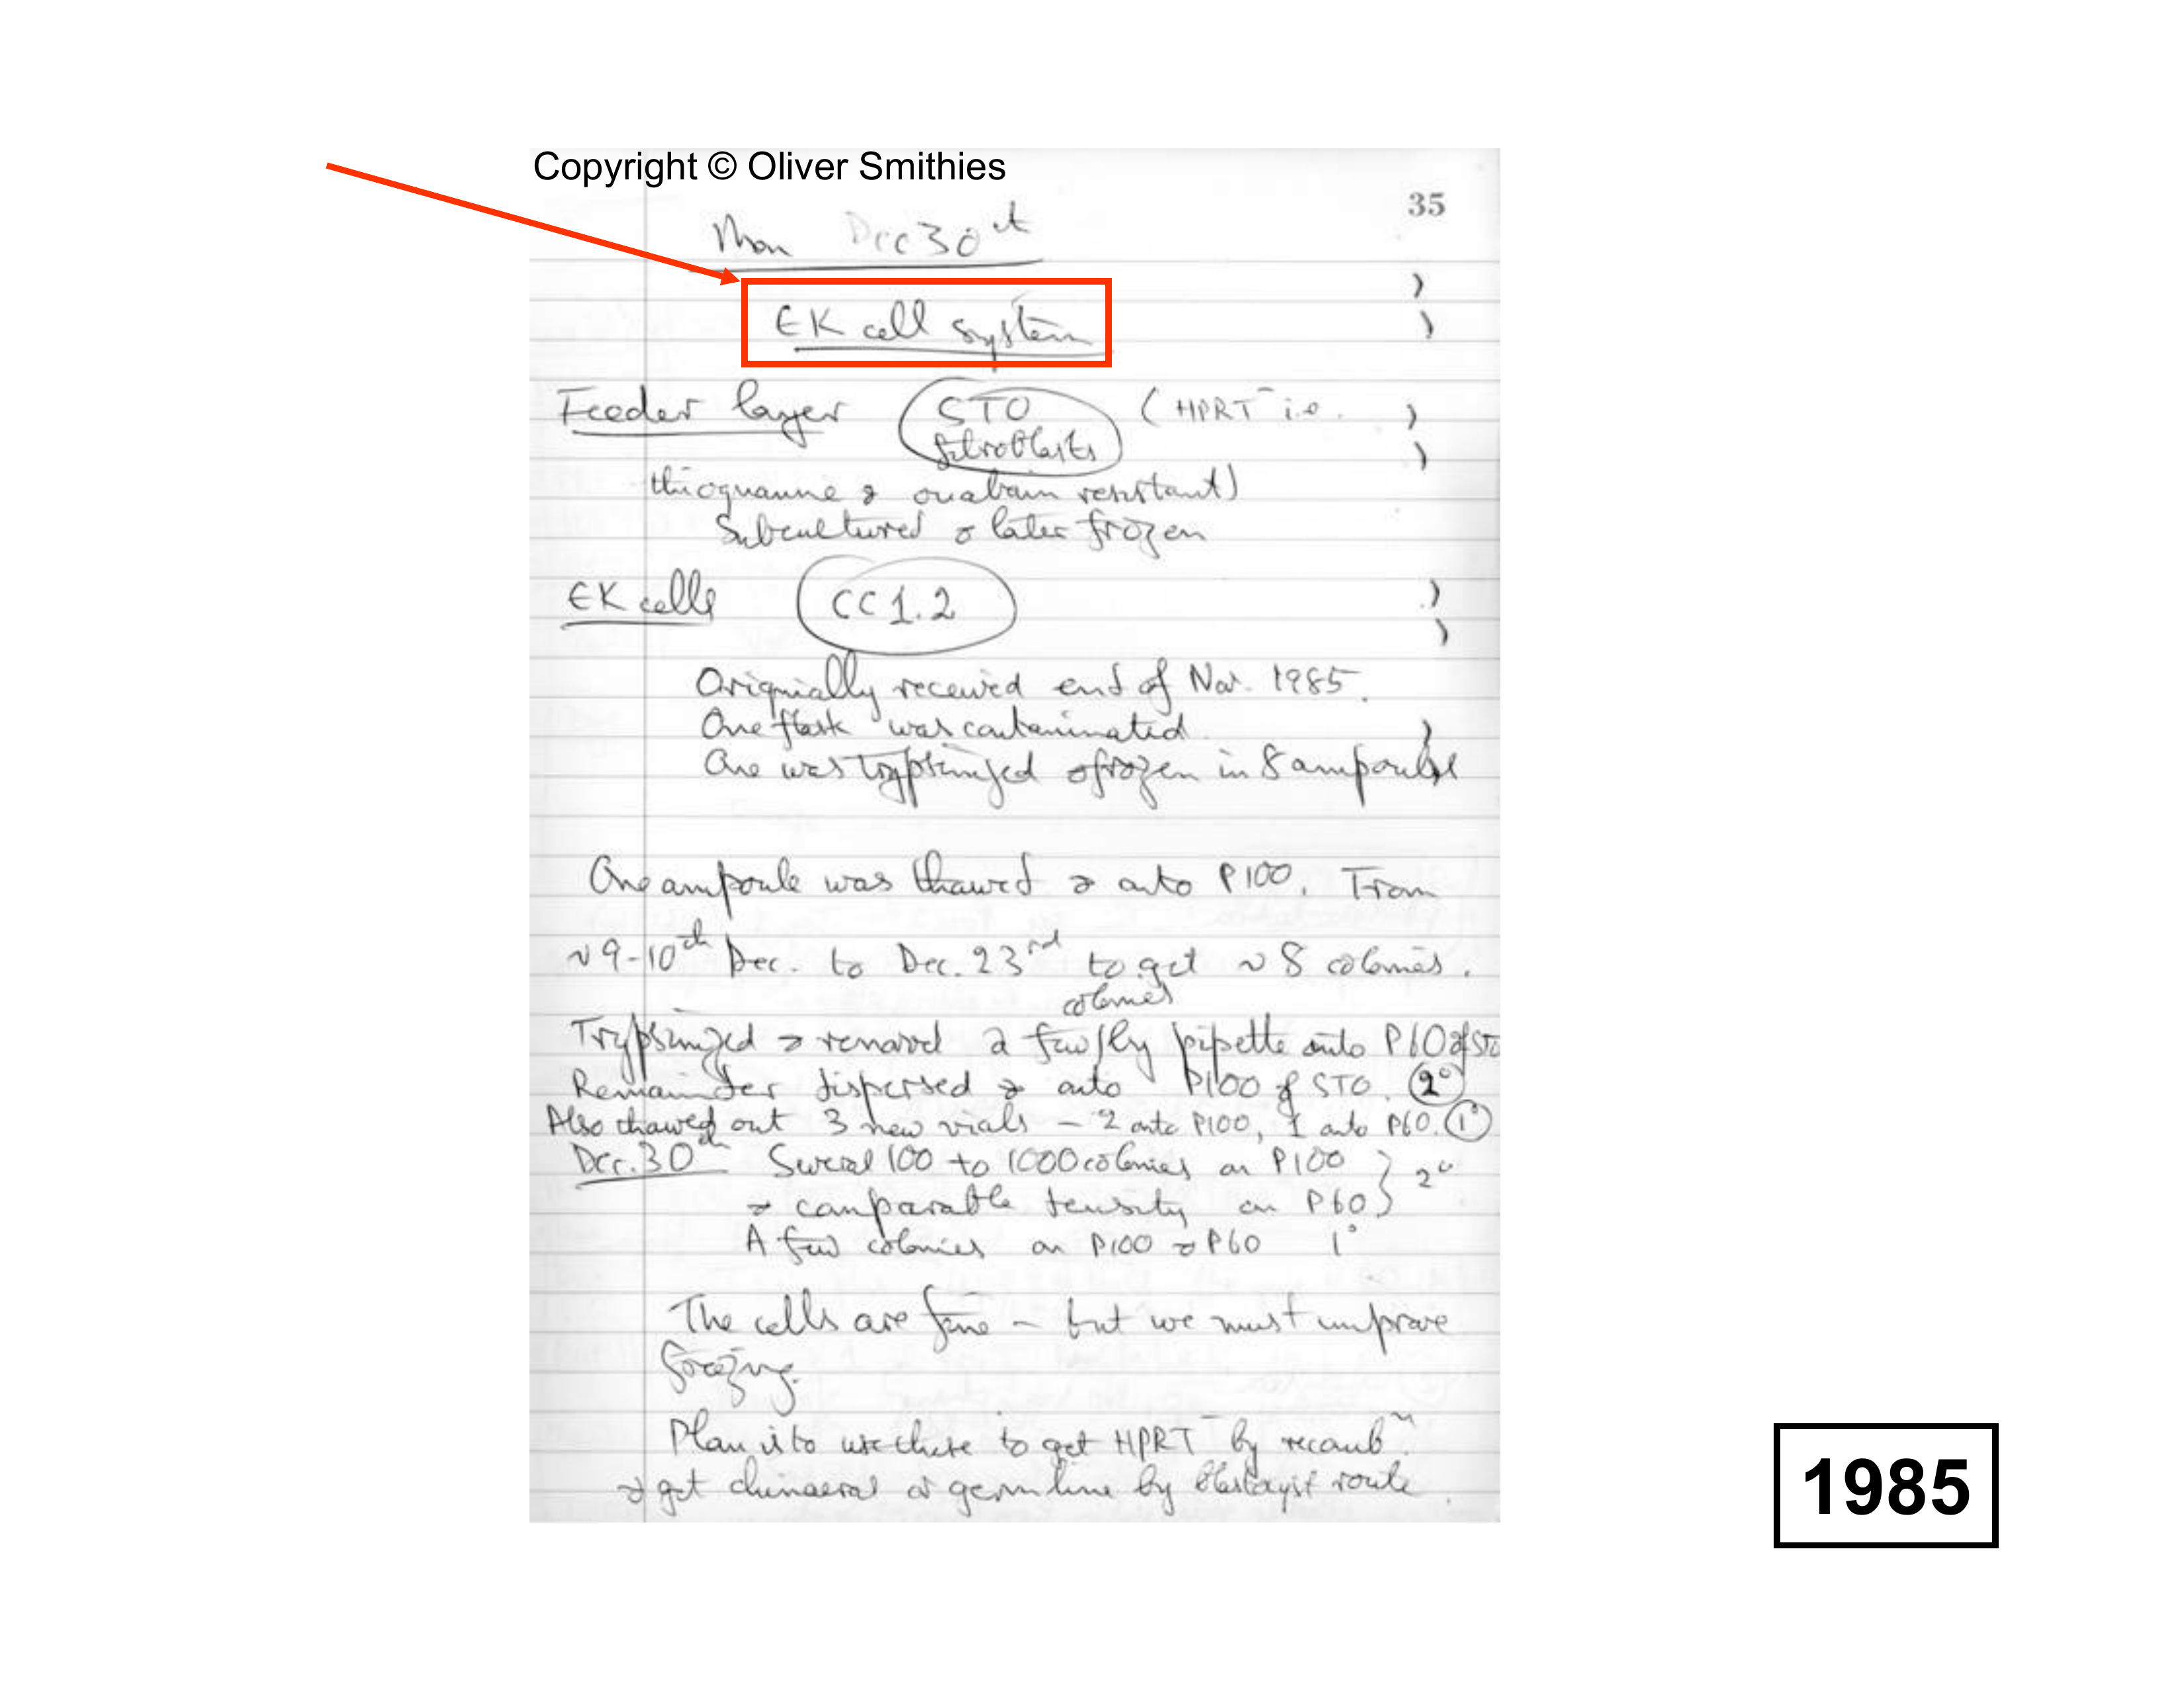 Copyright © Oliver Smithies
35
Mon Dec 30th
EK cell system
Feeder layer STO (HPRT⁻ i.e.
fibroblasts
thioguanine & ouabain resistant)
Subcultured & later frozen
EK cells CC1.2
Originally received end of Nov. 1985.
One flask was contaminated.
One was trypsinized & frozen in 8 ampoules
One ampoule was thawed & onto P100. From
~ 9-10th Dec. to Dec. 23rd to get ~ 8 colonies.
colonies
Trypsinized & removed a few by pipette onto P60 of STO
Remainder dispersed & onto P100 of STO. 2°
Also thawed out 3 new vials - 2 onto P100, 1 onto P60. 1°
Dec. 30th Several 100 to 1000 colonies on P100 } 2°
& comparable density on P60
A few colonies on P100 & P60 1°
The cells are fine - but we must improve
freezing.
Plan is to use these to get HPRT⁻ by recombⁿ.
& get chimaeras or germ line by blastocyst route.
1985